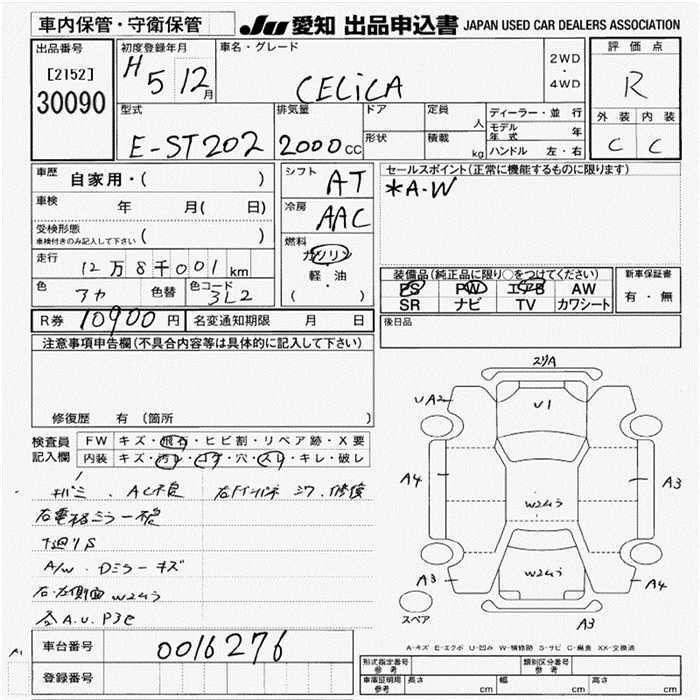 車内保管・守衛保管
JU 愛知 出品申込書 JAPAN USED CAR DEALERS ASSOCIATION
出品番号
[2152]
30090
初度登録年月
H 5 12月
車名・グレード
CELiCA
2WD
・
4WD
評価点
R
外装 内装
C C
型式
E-ST202
排気量
2000cc
ドア
形状
定員
人
積載
kg
ディーラー・並行
モデル年式 年
ハンドル 左・右
車歴
自家用・( )
車検
年 月( 日)
受検形態
車検付きのみ記入して下さい ( )
走行
12万8千001km
色
アカ
色替
色コード
3L2
シフト
AT
冷房
AAC
燃料
ガソリン
軽・油
( )
セールスポイント(正常に機能するものに限ります)
*A-W
装備品(純正品に限り○をつけてください)
PS PW エアB AW
SR ナビ TV カワシート
新車保証書
有・無
R券 10900円
名変通知期限 月 日
後日品
注意事項申告欄(不具合内容等は具体的に記入して下さい)
修復歴 有 (箇所 )
検査員記入欄
FW キズ・飛石・ヒビ割・リペア跡・X要
内装 キズ・汚レ・コゲ・穴・スレ・キレ・破レ
AC不良
右電格ミラー不良
下廻りS
A/W・Dミラーキズ
右・左側面W2ムラ
A.U.P3e
スリA
UA2
U1
A4
A3
W2ムラ
W2ムラ
A3
A4
A3
スペア
A-キズ E-エクボ U-凹み W-補修跡 S-サビ C-腐食 XX-交換済
A1
車台番号
0016276
登録番号
形式指定番号
参考
類別区分番号
参考
車庫証明用
参考
長さ cm
幅 cm
高さ cm